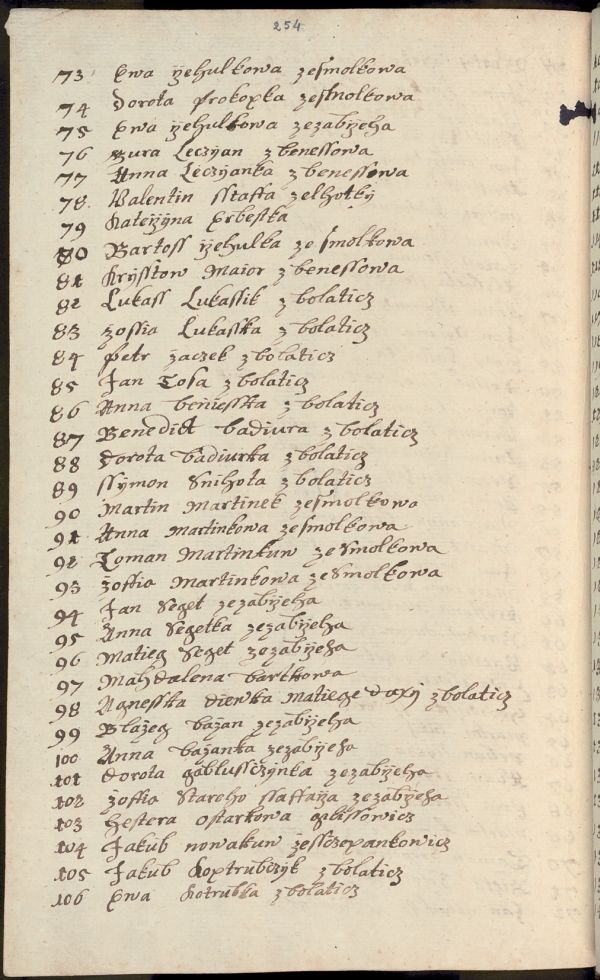 254
73 Ewa yehulkowa zesmolkowa
74 Dorota Prokopka zesmolkowa
75 Ewa yehulkowa zezabyeha
76 Jura Leczyan z benessowa
77 Anna Leczyanka z benessowa
78 Walentin sstaffa zelhotky
79 Kateżyna
80 Bartoss yehulka ze smolkowa
81 Krysstow Maior z benessowa
82 Lukass Lukassik z bolaticz
83 zossia Lukasska z bolaticz
84 Petr zaczek z bolaticz
85 Jan Tosa z bolaticz
86 Anna beniesska z bolaticz
87 Benedict badiura z bolaticz
88 Dorota badiurka z bolaticz
89 ssymon Snihota z bolaticz
90 Martin Martinek zesmolkowa
91 Anna Martinkowa zesmolkowa
92 Toman Martinkuw ze Smolkowa
93 zoffia Martinkowa ze Smolkowa
94 Jan Seget zezabyeha
95 Anna Segetka zezabyeha
96 Matieg Seget zezabyeha
97 Mahdalena bartkowa
98 Agnesska diewka Matiege z bolaticz
99 Blażeg bażan zezabyeha
100 Anna bażanka zezabyeha
101 Dorota gablussczynka zezabyeha
102 zoffia Stareho ssaffaża zezabyeha
103 hestera ostarkowa
104 Jakub nowakuw zessczepankowicz
105 Jakub Koptrubczyk z bolaticz
106 Ewa Kotrubka z bolaticz